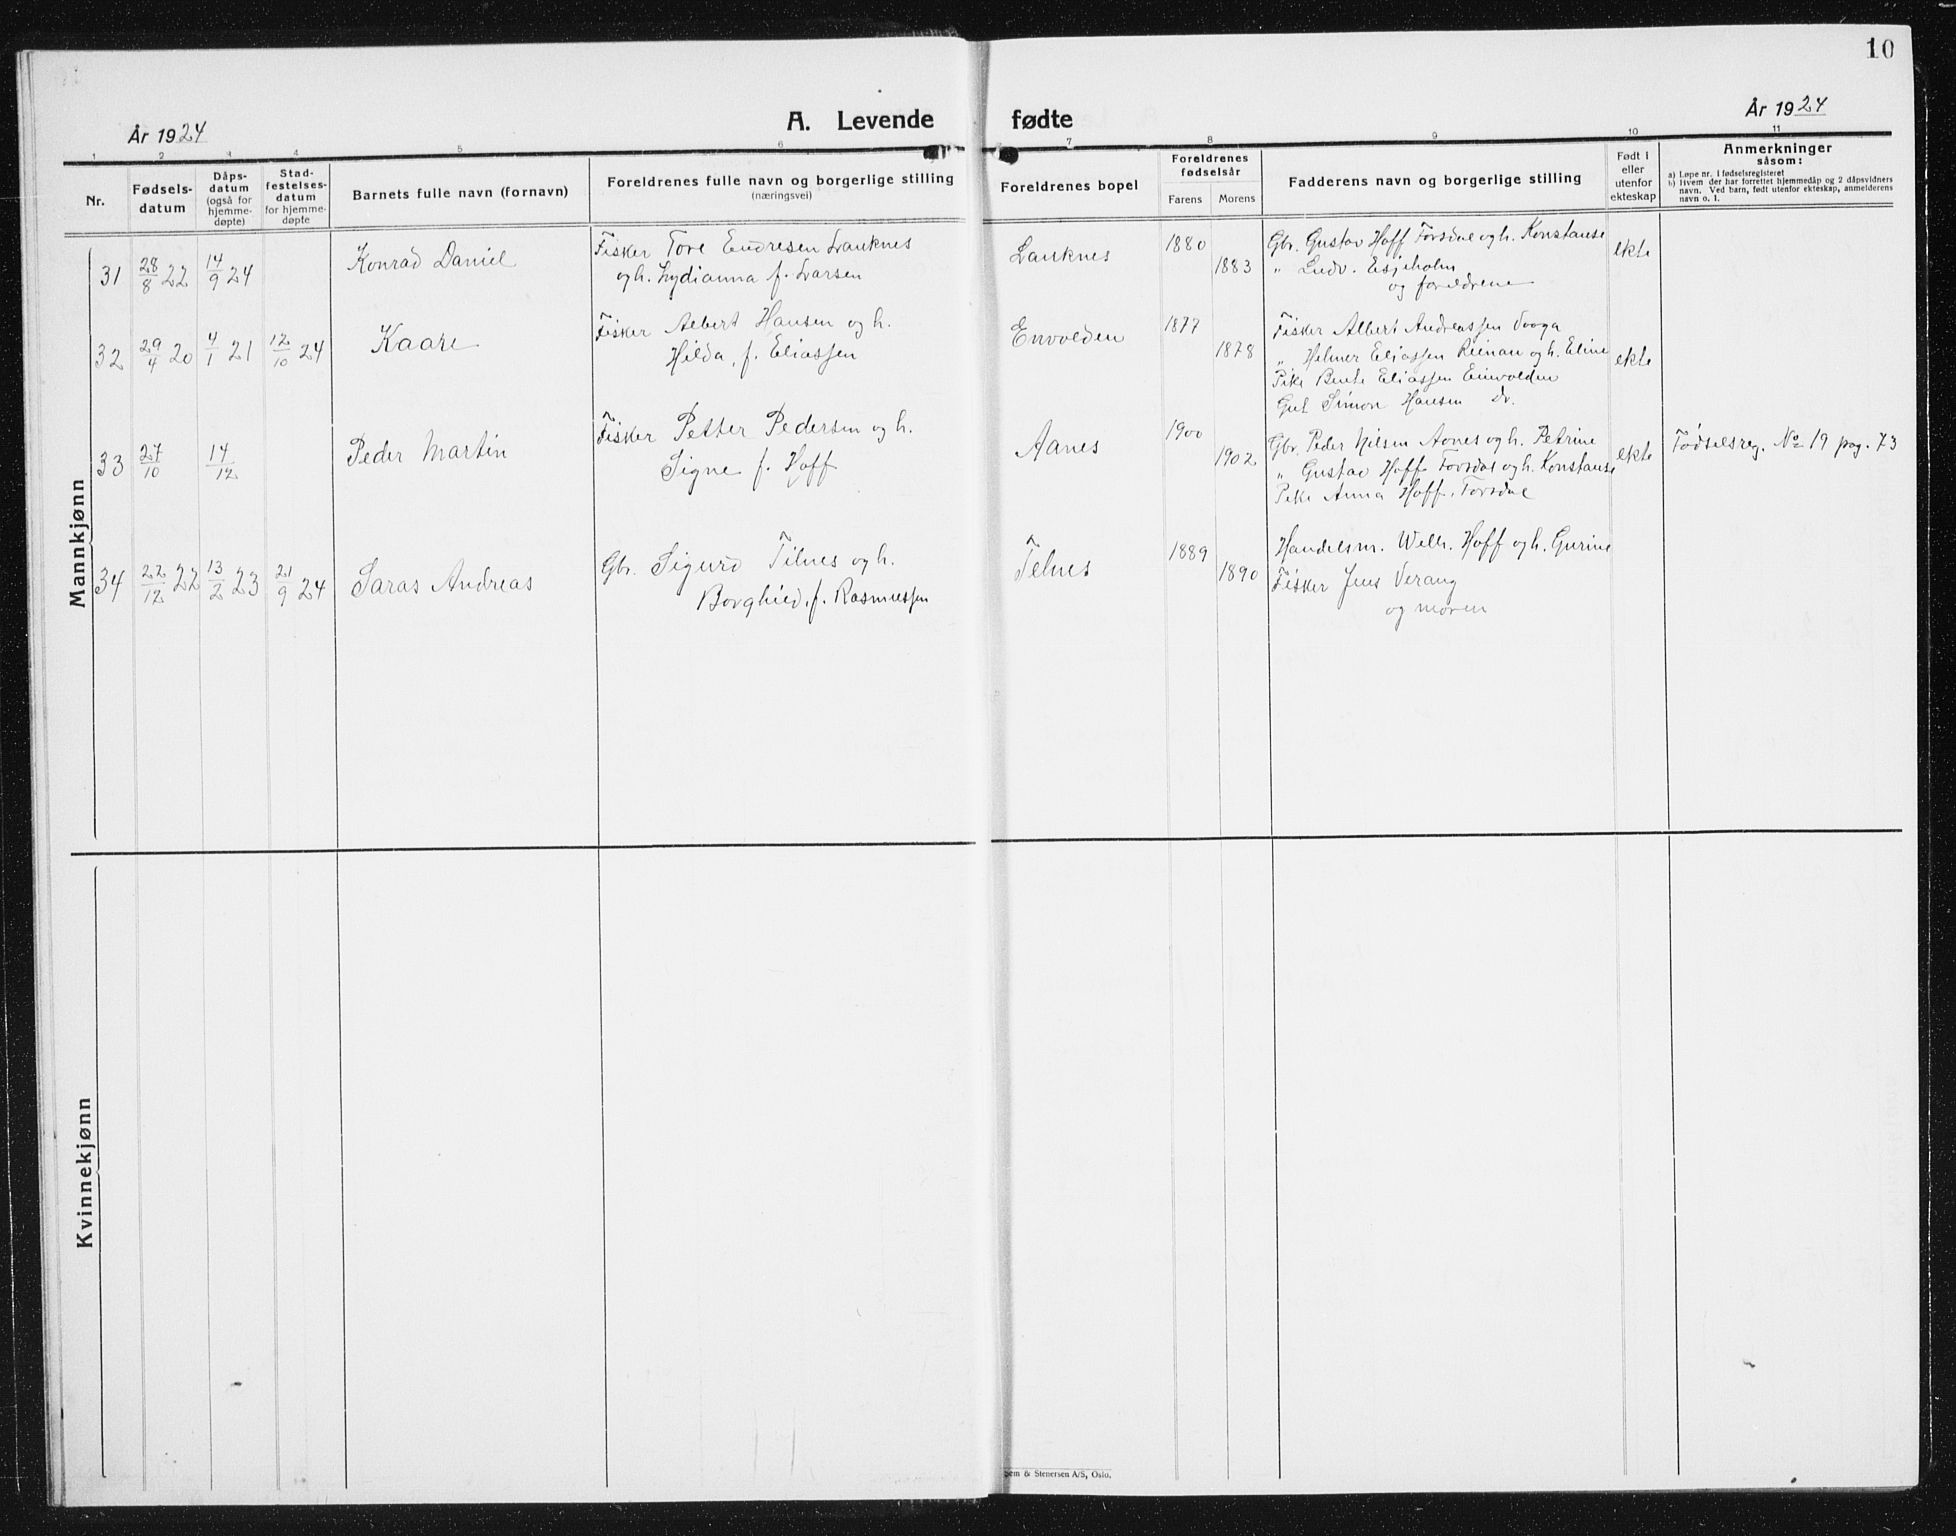 10
År 1924
A. Levende fødte
År 1924
1 2 3 4 5 6 7 8 9 10 11
Nr.
Fødsels-
datum
Dåps-
datum
(også for
hjemme-
døpte)
Stad-
festelses-
datum
for hjemme-
døpte
Barnets fulle navn (fornavn)
Foreldrenes fulle navn og borgerlige stilling
(næringsvei)
Foreldrenes bopel
Foreldrenes
fødselsår
Farens Morens
Fadderens navn og borgerlige stilling
Født i
eller
utenfor
ekteskap
Anmerkninger
såsom:
a) Løpe nr. i fødselsregisteret
b) Hvem der har forrettet hjemmedåp og 2 dåpsvidners
navn. Ved barn, født utenfor ekteskap, anmelderens
navn o. l.
Mannkjønn
31 28/8 22 14/9 24 Konrad Daniel
Fisker Tore Endresen Lauknes
og h. Lydianna f. Larsen
Lauknes 1880 1883
Gbr. Gustav Hoff Forsdal og h. Konstanse
" Ludv. Esjeholm
og foreldrene
ekte
32 29/4 20 4/1 21 12/10 24 Kaare
Fisker Albert Hansen og h.
Hilda, f. Eliassen
Envolden 1877 1878
Fisker Albert Andreassen Vooga
" Helmer Eliassen Reinan og h. Eline
Pike Bente Eliassen Einvolden
Gut Simon Hansen Do.
ekte
33 27/10 14/12 Peder Martin
Fisker Petter Pedersen og h.
Signe f. Hoff
Aanes 1900 1902
Gbr. Peder Nilsen Aanes og h. Petrine
" Gustav Hoff Forsdal og h. Konstanse
Pike Anna Hoff, Forsdal
ekte
Fødselsreg. No 19 pag. 73
34 22/12 22 13/2 23 21/9 24 Saras Andreas
Gbr. Sigurd Tilnes og h.
Borghild, f. Rasmussen
Telnes 1889 1890
Handelsm. Wilh. Hoff og h. Gurine
Fisker Jens Verang
og moren
Kvinnekjønn
Sem & Stenersen A/S, Oslo.